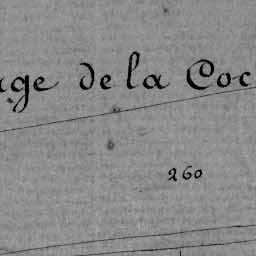 age de la Coc
260